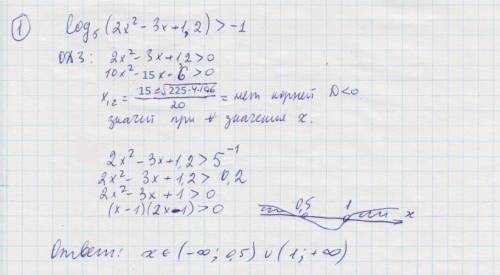 ①
log₅(2x² - 3x + 1,2) > -1
ОДЗ: 2x² - 3x + 1,2 > 0
10x² - 15x + 6 > 0
x₁,₂ = (15 ± √225-4·146)/20 = нет корней D<0
значит при ∀ значения x.
2x² - 3x + 1,2 > 5⁻¹
2x² - 3x + 1,2 > 0,2
2x² - 3x + 1 > 0
(x - 1)(2x - 1) > 0
0,5 1 x
Ответ: x ∈ (-∞; 0,5) ∪ (1; +∞)